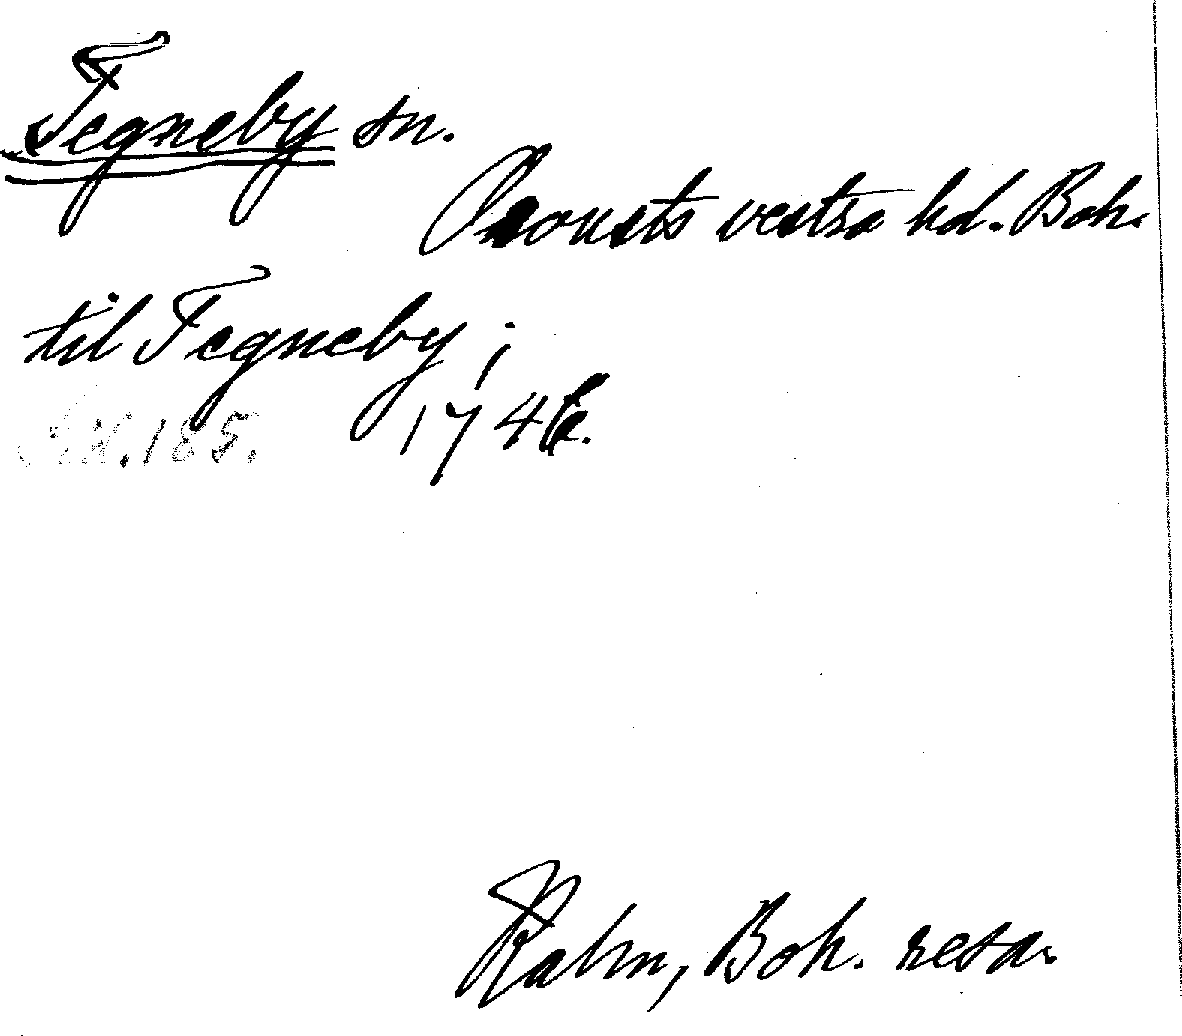 Tegneby sn.
Orousts vestra hd. Boh.
til Tegneby;
1742.
s. 185.
Kalm, Boh. resa.